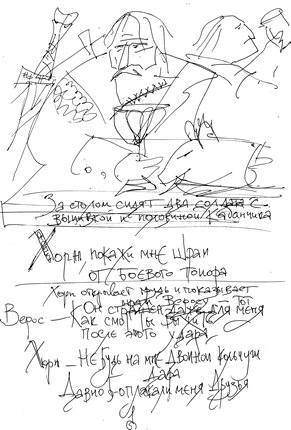 За столом сидят два солдата с
выпивкой и половиной кабанчика
Хорн, покажи мне шрам
от боевого топора
Хорн открывает грудь и показывает
шрам Веросу — тот
Верос — Он страшен даже для меня
Как смог ты выжить
после этого удара
Хорн — Не будь на мне двойной кольчуги
Давно б оплакали меня друзья